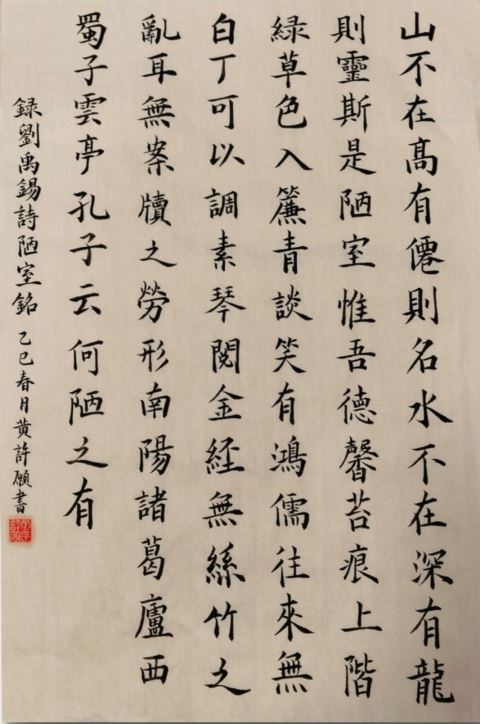 山不在髙有僊則名水不在深有龍
則靈斯是陋室惟吾德馨苔痕上階
緑草色入簾青談笑有鴻儒往來無
白丁可以調素琴閱金経無絲竹之
亂耳無案牘之勞形南陽諸葛廬西
蜀子雲亭孔子云何陋之有
録劉禹錫詩陋室銘 乙巳春月黄許願書